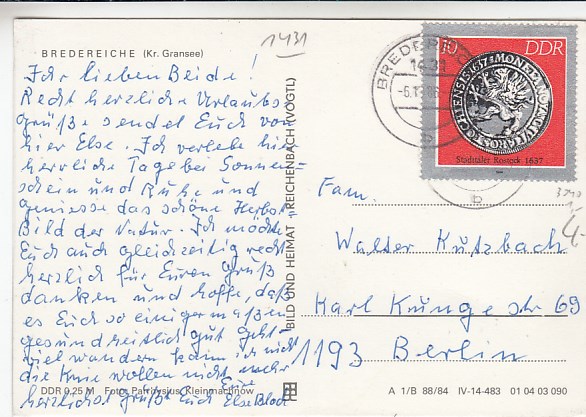 BREDEREICHE (Kr. Gransee)
1431
Ihr lieben Beide!
Recht herzliche Urlaubs-
grüße sendet Euch von
hier Else. Ich verlebe hier
herrliche Tage bei Sonnen-
schein und Ruhe und
geniesse das schöne Herbst-
Bild der Natur. Ich möchte
Euch auch gleichzeitig recht
herzlich für Euren Gruß
danken und hoffe, daß
es Euch so einigermaßen
gesundheitlich gut geht-
viel wandern kann ich nicht
die Knie wollen nicht mehr
herzlichst grüßt Euch Eure Else Bloch
DDR 0,25 M Foto: Parthysius, Kleinmachnow
BILD UND HEIMAT REICHENBACH (VOGTL)
BREDEREICHE
1431
-6.1
86
b
10 DDR
Stadttaler Rostock 1637
b
4,-
Fam.
Walter Kutzbach
Karl Kunge str 69
1193 Berlin
A 1/B 88/84 IV-14-483 01 04 03 090